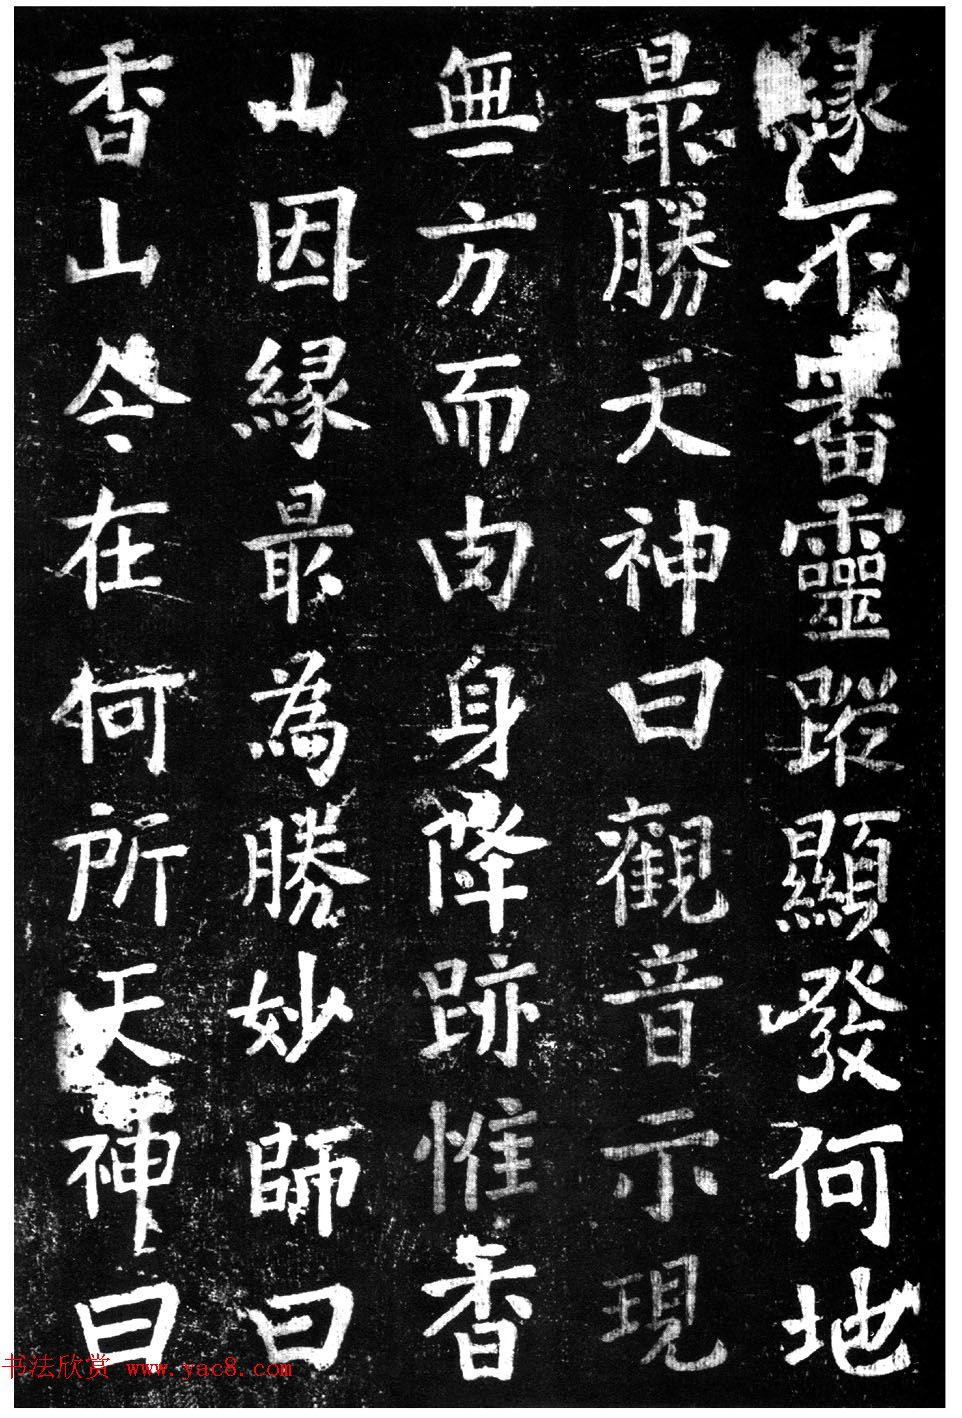 緣不審靈蹤顯發何地
最勝天神曰觀音示現
無方而肉身降跡惟香
山因緣最為勝妙師曰
香山今在何所天神曰
书法欣赏 www.yac8.com